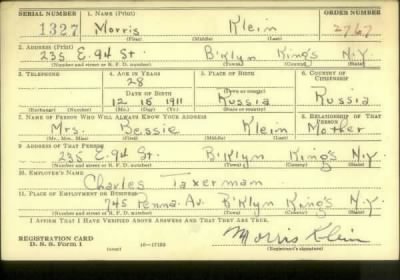 SERIAL NUMBER 1. NAME (Print) ORDER NUMBER
1327 Morris Klein 2767
(First) (Middle) (Last)
2. ADDRESS (Print)
235 E. 94 St. B'klyn King's N.Y.
(Number and street or R. F. D. number) (Town) (County) (State)
3. TELEPHONE 4. AGE IN YEARS 5. PLACE OF BIRTH 6. COUNTRY OF CITIZENSHIP
28
DATE OF BIRTH (Town or county)
12 15 1911 Russia Russia
(Exchange) (Number) (Mo.) (Day) (Yr.) (State or country)
7. NAME OF PERSON WHO WILL ALWAYS KNOW YOUR ADDRESS 8. RELATIONSHIP OF THAT PERSON
Mrs. Bessie Klein Mother
(Mr., Mrs., Miss) (First) (Middle) (Last)
9. ADDRESS OF THAT PERSON
235 E. 94 St. B'klyn King's N.Y.
(Number and street or R. F. D. number) (Town) (County) (State)
10. EMPLOYER'S NAME
Charles Taxerman
11. PLACE OF EMPLOYMENT OR BUSINESS
745 Penna. Av. B'klyn King's N.Y.
(Number and street or R. F. D. number) (Town) (County) (State)
I AFFIRM THAT I HAVE VERIFIED ABOVE ANSWERS AND THAT THEY ARE TRUE.
REGISTRATION CARD
D. S. S. Form 1 (over) 16—17105 Morris Klein
(Registrant's signature)